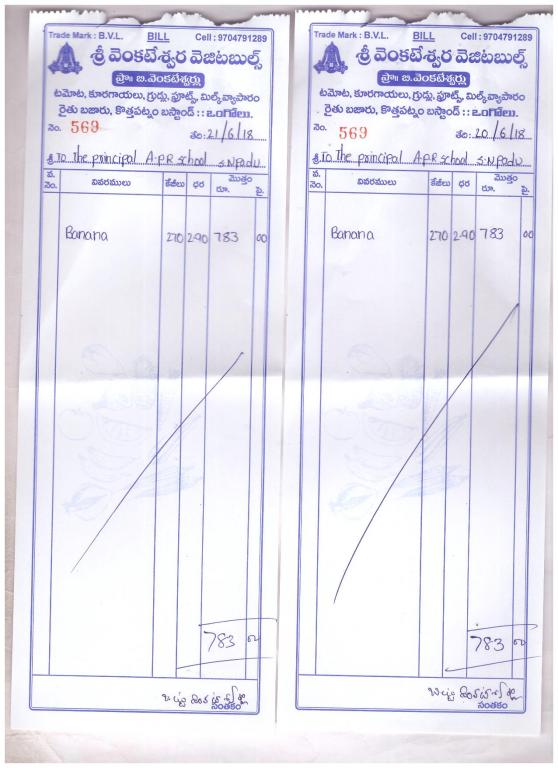 Trade Mark : B.V.L. BILL Cell : 9704791289
శ్రీ వెంకటేశ్వర వెజిటబుల్స్
ప్రొ॥ బి.వెంకటేశ్వర్లు
టమోట, కూరగాయలు, గ్రుడ్లు, ఫ్రూట్స్, మిల్క్‌వ్యాపారం
రైతు బజారు, కొత్తపట్నం బస్టాండ్ :: ఒంగోలు.
నెం. 569 తేది: 21/6/18
శ్రీ. To The principal A.P.R School S.N.Padu
వ. నెం. వివరములు కేజీలు ధర మొత్తం రూ. పై.
Banana 270 2-90 783 00
783 00
సంతకం
Trade Mark : B.V.L. BILL Cell : 9704791289
శ్రీ వెంకటేశ్వర వెజిటబుల్స్
ప్రొ॥ బి.వెంకటేశ్వర్లు
టమోట, కూరగాయలు, గ్రుడ్లు, ఫ్రూట్స్, మిల్క్‌వ్యాపారం
రైతు బజారు, కొత్తపట్నం బస్టాండ్ :: ఒంగోలు.
నెం. 569 తేది: 20/6/18
శ్రీ. To The principal A.P.R School S.N.Padu
వ. నెం. వివరములు కేజీలు ధర మొత్తం రూ. పై.
Banana 270 2-90 783 00
783 00
సంతకం